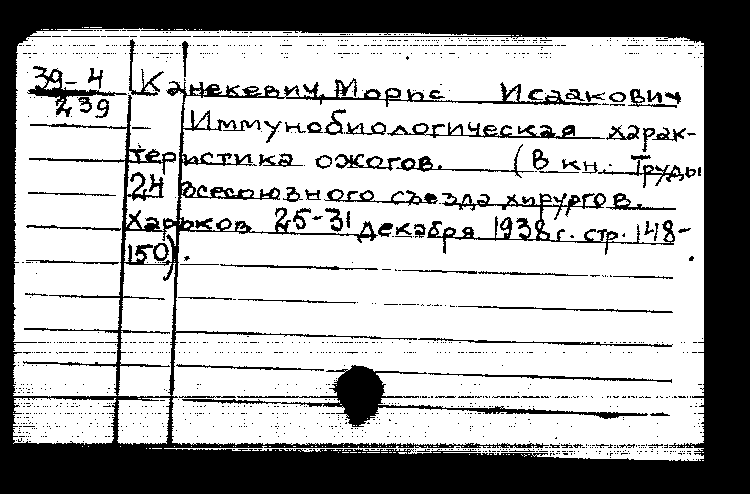 39-4
239
Каневевич, Морис Исаакович
Иммунобиологическая харак-
теристика ожогов. (В кн.: Труды
24 всесоюзного съезда хирургов.
Харьков 25-31 декабря 1938 г. стр. 148-
150).